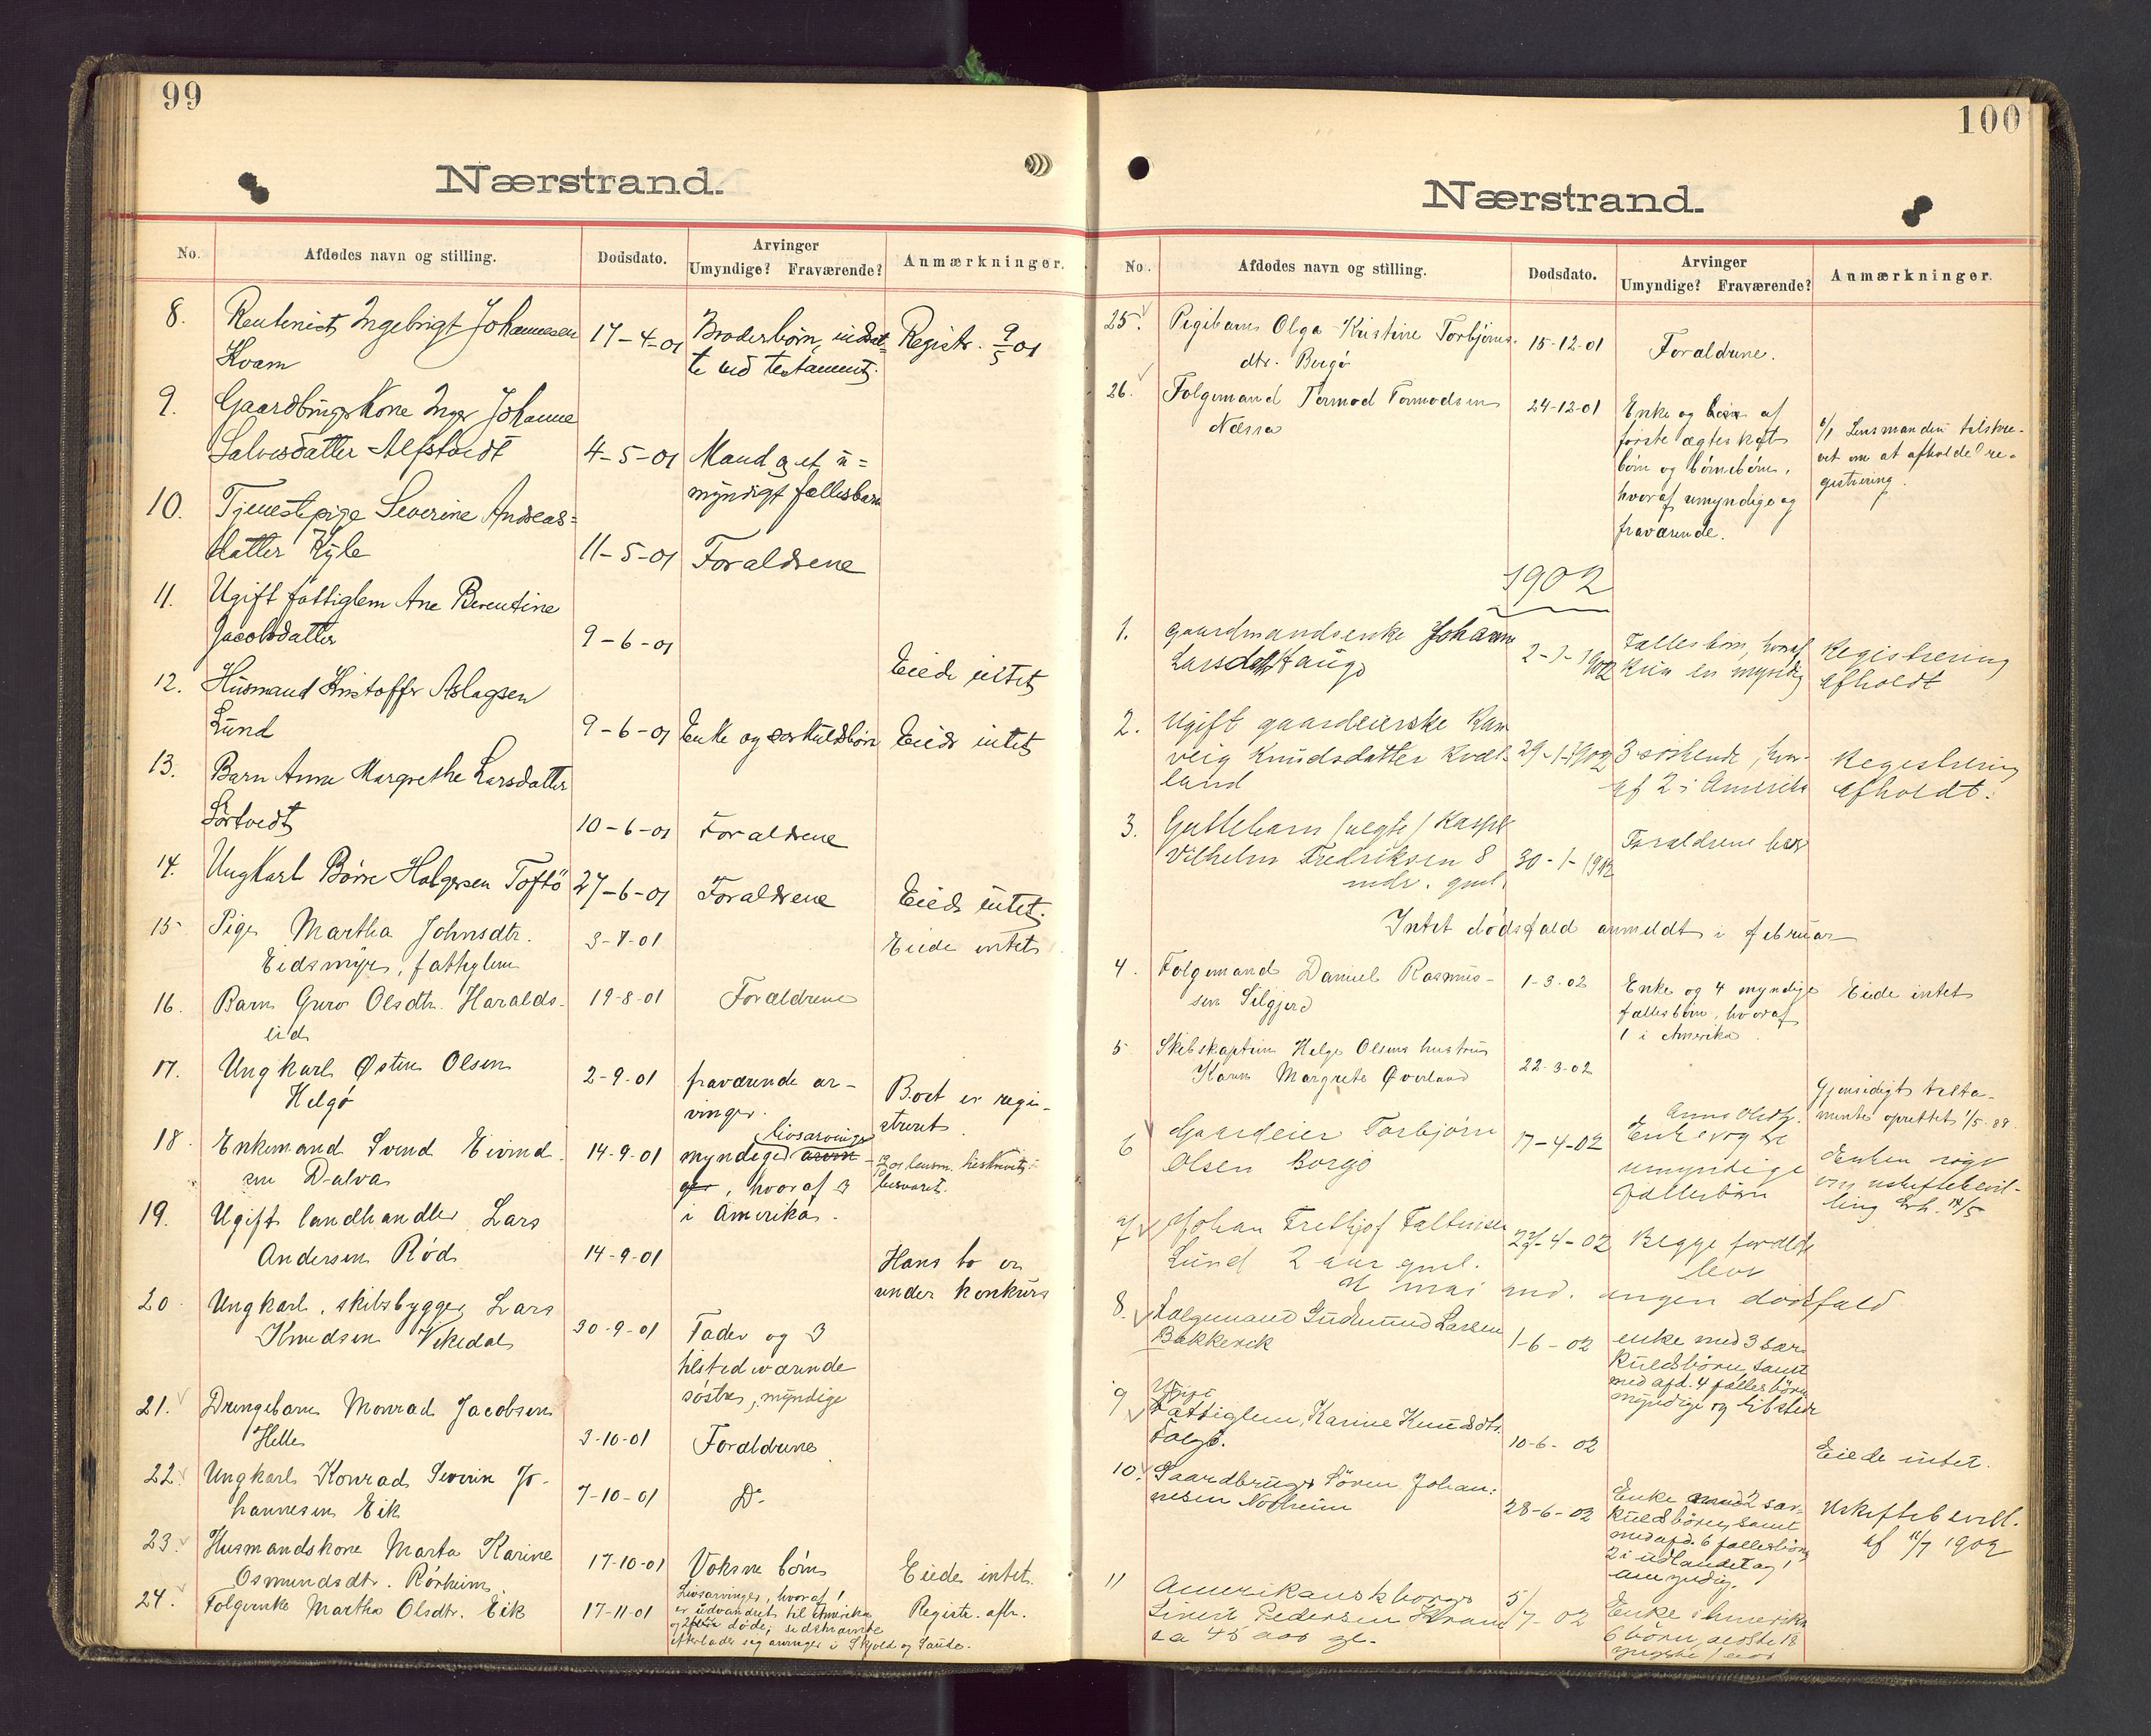 99
Nærstrand.
No. Afdødes navn og stilling. Dødsdato. Arvinger Umyndige? Fraværende? Anmærkninger.
8. Rentenist Ingebrigt Johannesen 17-4-01 Broderbørn, indsat- Registr. 9/5 01
Kvam te ved testament.
9. Gaardbrugerkone Inger Johanne
Salvesdatter Alfstvedt 4-5-01 Mand og et u=
myndigt fællesbarn
10. Tjenestpige Severine Andreas=
datter Kyle 11-5-01 Forældrene
11. Ugift fattiglem Ane Berentine
Jacobsdatter 9-6-01 Eiede intet
12. Husmand Kristoffer Aslagsen
Lund 9-6-01 Enke og særkuldsbørn Eiede intet
13. Barn Anna Margrethe Larsdatter
Sørtvedt 10-6-01 Forældrene
14. Ungkarl Børre Holgersen Toftø 27-6-01 Forældrene Eiede intet.
15 Pige Martha Johnsdtr. 3-7-01 Eiede intet
Eidsmyr, fattiglem
16. Barn Guro Olsdtr. Haralds- 19-8-01 Forældrene
eid
17. Ungkarl Østen Olsen 2-9-01 fraværende ar- Boet er regi-
Helgø vinger. streret
18. Enkemand Svend Eivind- 14-9-01 myndige livsarvinger
sen Dalva , hvoraf 3 besvaret.
i Amerika.
19. Ugift landhandler Lars
Andersen Rød 14-9-01 Hans bo er
under konkurs
20. Ungkarl, skibsbygger Lars
Knudsen Vikedal 30-9-01 Fader og 3
tilstedværende
søstre, myndige
21. Drengebarn Monrad Jacobsen
Helle 3-10-01 Forældrene
22. Ungkarl Konrad Severin Jo-
hannesen Eik 7-10-01 Do
23. Husmandskone Marta Karine 17-10-01 Voksne børn Eiede intet.
Osmundsdtr. Rørheim.
24. Folgeenke Martha Olsdtr. Eik 17-11-01 Livsarvinger, hvoraf 1 Registr. afh.
er udvandret til Amerika
og 2 døde; sidstnævnte
efterlader seg arvinger i Skjold og Saude.
100
Nærstrand.
No. Afdødes navn og stilling. Dødsdato. Arvinger Umyndige? Fraværende? Anmærkninger.
25. Pigebarn Olga Kristine Torbjørns- 15-12-01 Forældrene.
dtr. Borgø
26. Folgemand Tormod Tormodsen 24-12-01 Enke og af
Næssa første ægteskab 6/1 Lensmanden tilskre-
børn og børnebørn, vet om at afholde re-
hvoraf umyndige og gistrering.
fraværende.
1902
1. gaardmandsenke Johanne 2-1-1902 Fællesbørn, hvoraf Registrering
Larsdatt Haugo kun en myndig afholdt
2. Ugift gaardeierske Ran
veig Knudsdatter Kval- 29-1-1902 3 søskende, hvor- Registrering
land af 2 i Amerika afholdt.
3. Guttebarn (uegte) Kasper
Vilhelm Fredriksen 8 30-1-1902 Forældrene
mdr. gml.
Intet dødsfald anmeldt i februar
4. Folgemand Daniel Rasmus- 1-3-02 Enke og 4 myndige Eiede intet
sen Silgjerd fællesbørn, hvoraf
1 i Amerika.
5 Skibskaptein Helge Olsens hustru
Karen Margrete Øverland 22-3-02 Gjensidigt testa-
mente oprettet 1/5 89.
6 Gaardeier Torbjørn 17-4-02 Enke og Enken søgt
Olsen Borgø umyndige om uskiftebevil-
fællesbørn ling
7 Johan Frethjof Faltinsen 27-4-02 Begge foreldre
Lund 2 aar gml. lever
I mai md. ingen dødsfald
8. Folgemand Gudmund Larsen 1-6-02 enke med 3 sær
Bakkevik kuldsbørn, samt
med afd. 4 fællesbørn
myndige og tilstede
9 Ugift
Fattiglem, Karine Knudsdtr.
Folgø. 10-6-02 Eiede intet.
10. Gaardbruger Søren Johan:
nesen Norheim 28-6-02 Enke med 2 sær- Uskiftebevill.
kuldsbørn, samt af 11/7 1902
med afd. 6 fællesbørn
2 i udlandet og 1
umyndig.
11 Amerikansk borger
Sivert Pedersen Kvam 5/7-02 Enke i Amerika
ca 45 aar gl. 6 børn, ældste 18
yngste 1 aar